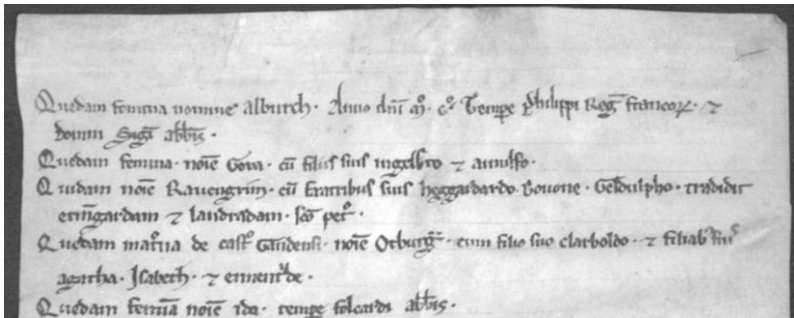 Quedam femina nomine alburch. Anno dnī mͦ. cͦ. Tempe Philippi Reg̅ francoꝝ. ⁊
domni Sig̅ abb̅is.
Quedam femina. noīe Gova. cū filiis suis ingelb̅to ⁊ arnulfo.
Quidam noīe Ravengrim. cū fratribus suis heggardardo Bovone. Geldulpho. tradidit
erm̅gardam ⁊ landradam. sc̅o petͦ.
Quedam matͦna de cast̅ Gandensi. noīe Otburg̅. cum filio suo clarboldo. ⁊ filiab; suis
agatha. Isabeth. ⁊ ermentͬde.
Quedam femīa noīe ida. tempe folcardi abb̅is.